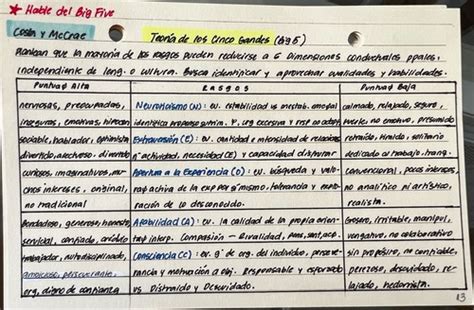 ★ Hable del Big Five
Costa y McCrae
Teoría de los Cinco Grandes (Big 5)
Plantean que la mayoría de los rasgos pueden reducirse a 5 Dimensiones conductuales ppales,
independiente de leng. o cultura. Busca identificar y aprovechar cualidades y habilidades.
Puntuaje Alta
Rasgos
Puntuaje Baja
nerviosas, preocupadas,
Neuroticismo (N): ev. estabilidad vs inestab. emocional
calmado, relajado, seguro,
inseguras, emotivas,
fuerte, no emotivo
sociable, hablador, optimista
Extraversión (E): ev. cantidad e intensidad de relaciones
retraído, tímido, solitario
divertido, afectuoso.
n° actividad, necesidad (E) y capacidad disfrutar
dedicado al trabajo, tranq.
curiosos, imaginativos, mu-
Apertura a la Experiencia (O): ev. búsqueda y valo-
convencional, pocos intereses,
chos intereses, original,
ración activa de la exp por sí mismo. tolerancia y explo-
no analítico ni artístico,
no tradicional
ración de lo desconocido.
realista.
Bondadoso, generoso, honesto,
Afabilidad (A): ev. la calidad de la propia orien-
Grosero, irritable, manipul,
servicial, confiado, crédulo
tac interp. Compasión - Rivalidad,
vengativo, no colaborativo
trabajador, autodisciplinado,
Consciencia (C): ev. g° de org. del individuo, perseve-
sin propósito, no confiable,
ambicioso, perseverante,
rancia y motivación a obj. Responsable y esforzado
perezoso, descuidado, re-
org, digno de confianza
vs Distraído y Descuidado.
lajado, hedonista.
13